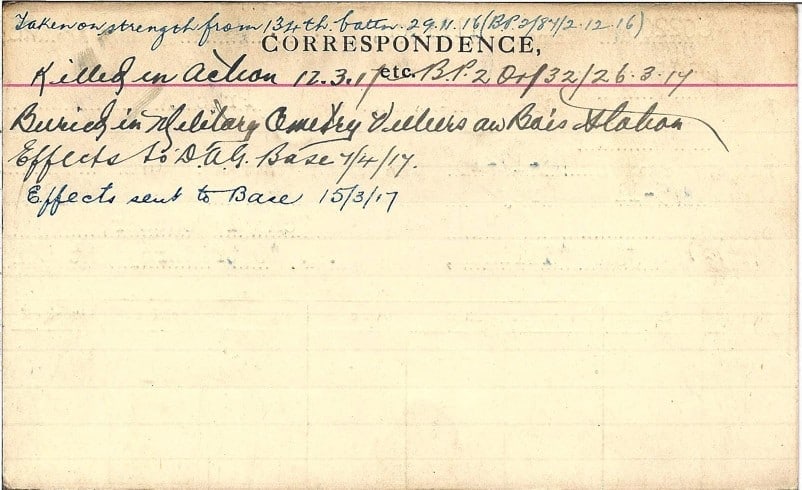 Taken on strength from 134th. battn. 29.11.16 (B.P. 2/84/2.12.16)
CORRESPONDENCE,
etc.
Killed in Action 12.3.17 B.P. 2 Orf 32/26.3.17
Buried in Military Cmetry Villiers au Bois Station
Effects to D.A.G. Base 7/4/17.
Effects sent to Base 15/3/17